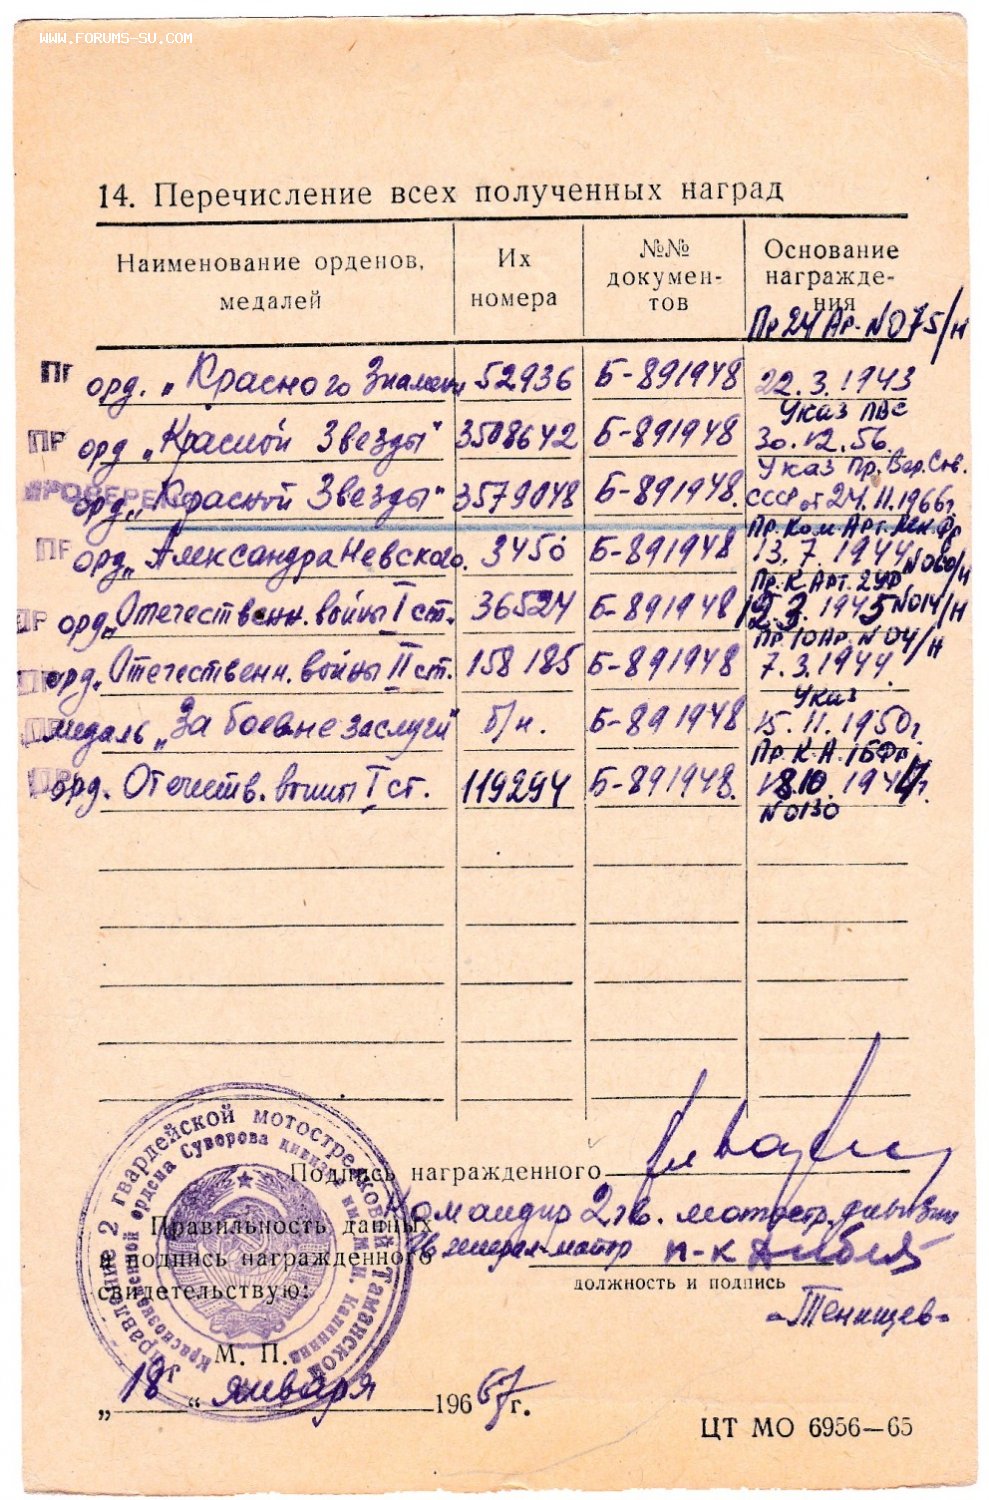 WWW.FORUMS-SU.COM
14. Перечисление всех полученных наград
Наименование орденов, медалей
Их номера
№№ докумен-тов
Основание награжде-ния
Пр 24 Ар. N 075/н
ПР орд. „Красного Знамени 52936 Б-891948 22.3.1943
Указ ПВС
ПР орд „Красной Звезды" 3508642 Б-891948 30.12.56.
Указ Пр. Вер. Сов.
ПРОВЕРЕНО орд. „Красной Звезды" 3579048 Б-891948. СССР от 24.11.1966г.
Пр. Ком. Арт.
ПР орд „Александра Невского. 3450 Б-891948 13.7.1944 N060/н
Пр. К Арт. 2УФ
ПР орд „Отечественн. войны I ст. 36524 Б-891948 12.3.1945 N014/н
Пр. 10 Ар. N 04/н
ПР орд. Отечественн. войны II ст. 158185 Б-891948 7.3.1944.
Указ
ПР медаль „За боевые заслуги" б/н. Б-891948 15.11.1950г.
Пр. К.А. 1БФр.
ПР орд. Отечеств. войны I ст. 119294 Б-891948. 18.10.1944г.
N 0130
Подпись награжденного
Правильность данных и подпись награжденного свидетельствую:
Командир 2 гв. мотостр. дивизии
гв генерал-майор п-к
должность и подпись
-Тенищев-
Управление 2 гвардейской мотострелковой Таманской
Краснознаменной ордена Суворова дивизии имени М. И. Калинина
М. П.
„18" января 1967 г.
ЦТ МО 6956—65